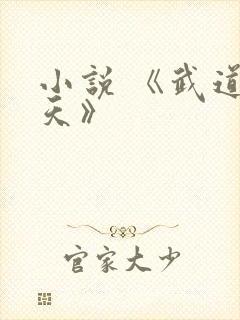 小説《武道
天》
官家大少